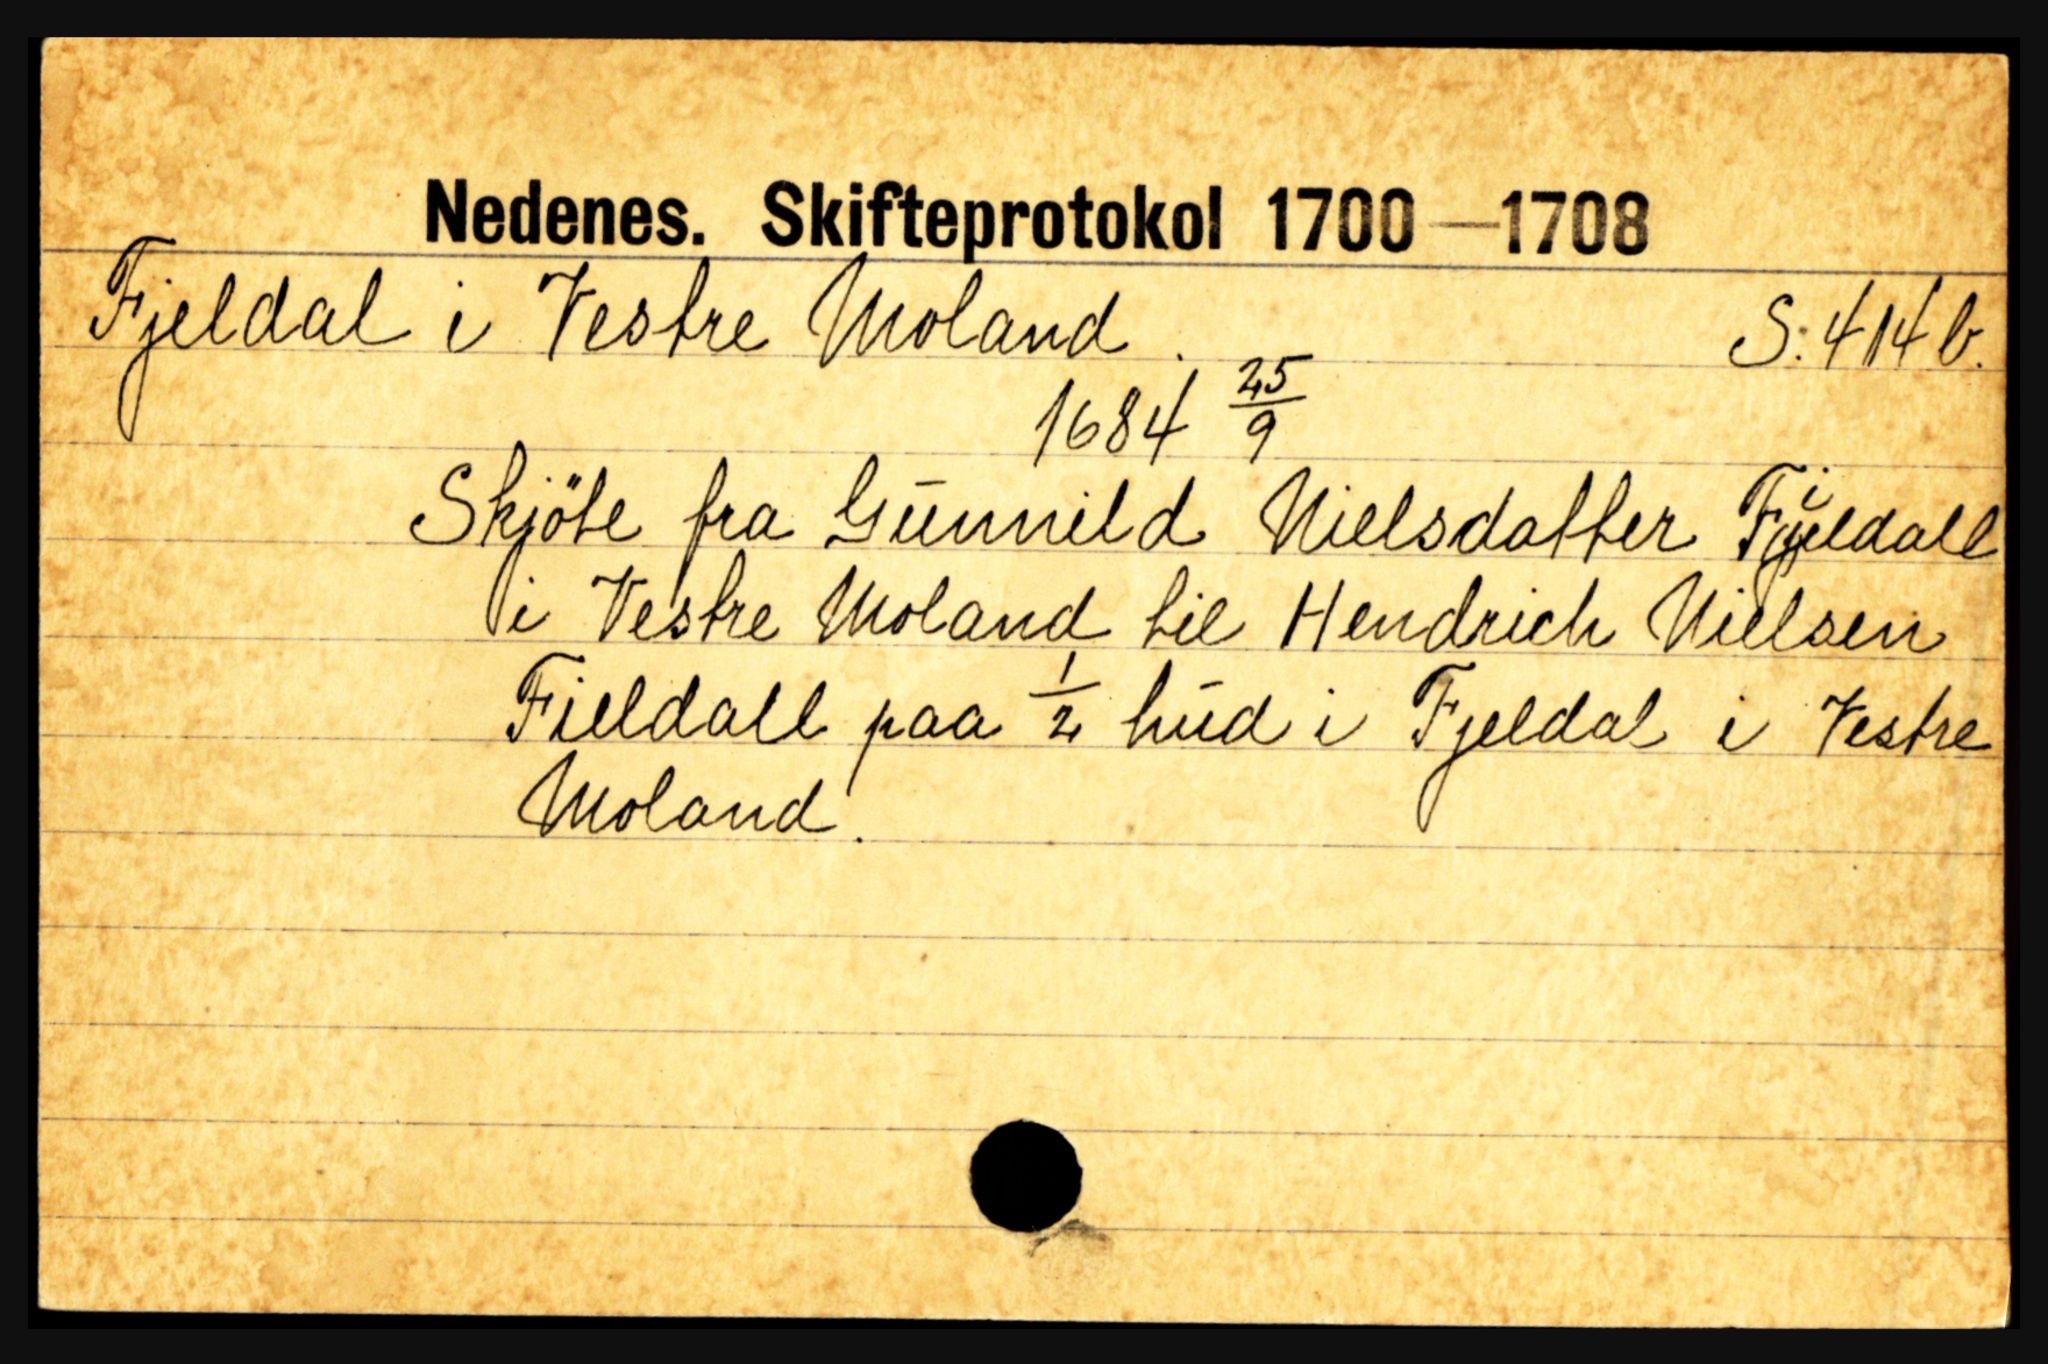 Nedenes. Skifteprotokol 1700—1708
Fjeldal i Vestre Moland. S: 414 b.
1684 25/9
Skjöte fra Gūnnild Nielsdatter Fieldall
i Vestre Moland til Hendrich Nielsen
Fieldall paa 1/2 hūd i Fjeldal i Vestre
Moland.